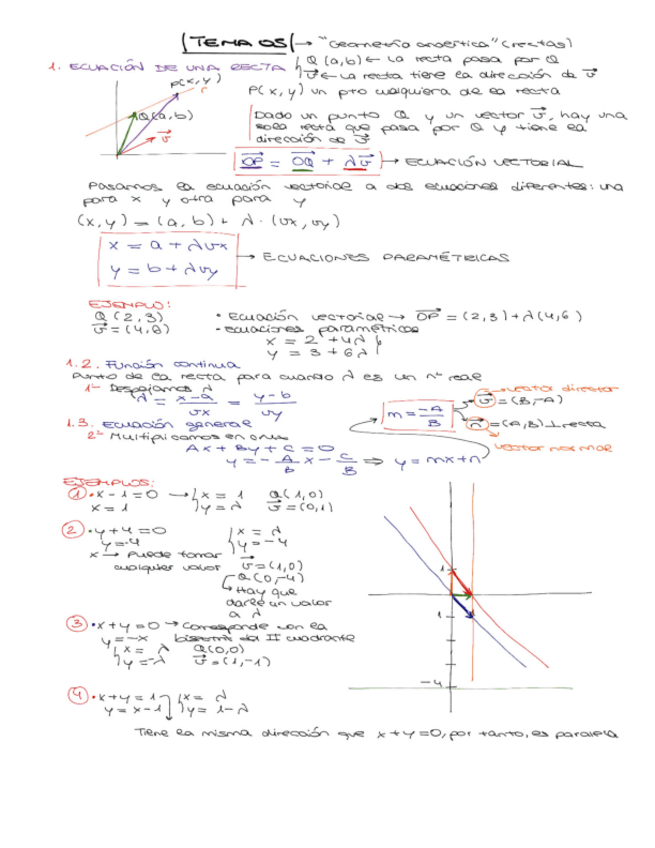 TEMA 05 → "Geometría analítica" (rectas)
1. ECUACIÓN DE UNA RECTA { Q (a,b) ← La recta pasa por Q
v⃗ ← La recta tiene la dirección de v⃗
P(x,y) un pto cualquiera de la recta
P(x,y)
r
Q(a,b)
v⃗
Dado un punto Q y un vector v⃗, hay una
sola recta que pasa por Q y tiene la
dirección de v⃗
OP⃗ = OQ⃗ + λv⃗ → ECUACIÓN VECTORIAL
Pasamos la ecuación vectorial a dos ecuaciones diferentes: una
para x y otra para y
(x,y) = (a,b) + λ · (vx, vy)
x = a + λvx
y = b + λvy
→ ECUACIONES PARAMÉTRICAS
EJEMPLO:
Q (2,3)
v⃗ = (4,6)
• Ecuación vectorial → OP⃗ = (2,3) + λ(4,6)
• ecuaciones paramétricas
x = 2 + 4λ
y = 3 + 6λ
1.2. Función continua
Punto de la recta para cuando λ es un nº real
1º Despejamos λ
λ = x-a / vx = y-b / vy
1.3. Ecuación general
2º Multiplicamos en cruz
Ax + By + C = 0
y = - A/B x - C/B ⇒ y = mx+n
m = -A/B
→ vector director
v⃗ = (B,-A)
n⃗ = (A,B) ⊥ recta
vector normal
EJEMPLOS:
1 • x - 1 = 0 → { x = 1 Q( 1,0)
x = 1 y = λ v⃗ = (0,1)
2 • y + 4 = 0 { x = λ
y = -4 y = -4
x → Puede tomar
cualquier valor v⃗ = (1,0)
Q (0,-4)
↳ Hay que
darle un valor
a λ
3 • x + y = 0 → Corresponde con la
y = -x bisectriz del II cuadrante
{ x = λ Q(0,0)
y = -λ v⃗ = (1,-1)
4 • x + y = 1 { x = λ
y = x - 1 y = 1-λ
Tiene la misma dirección que x + y = 0, por tanto, es paralela
1
1
-4